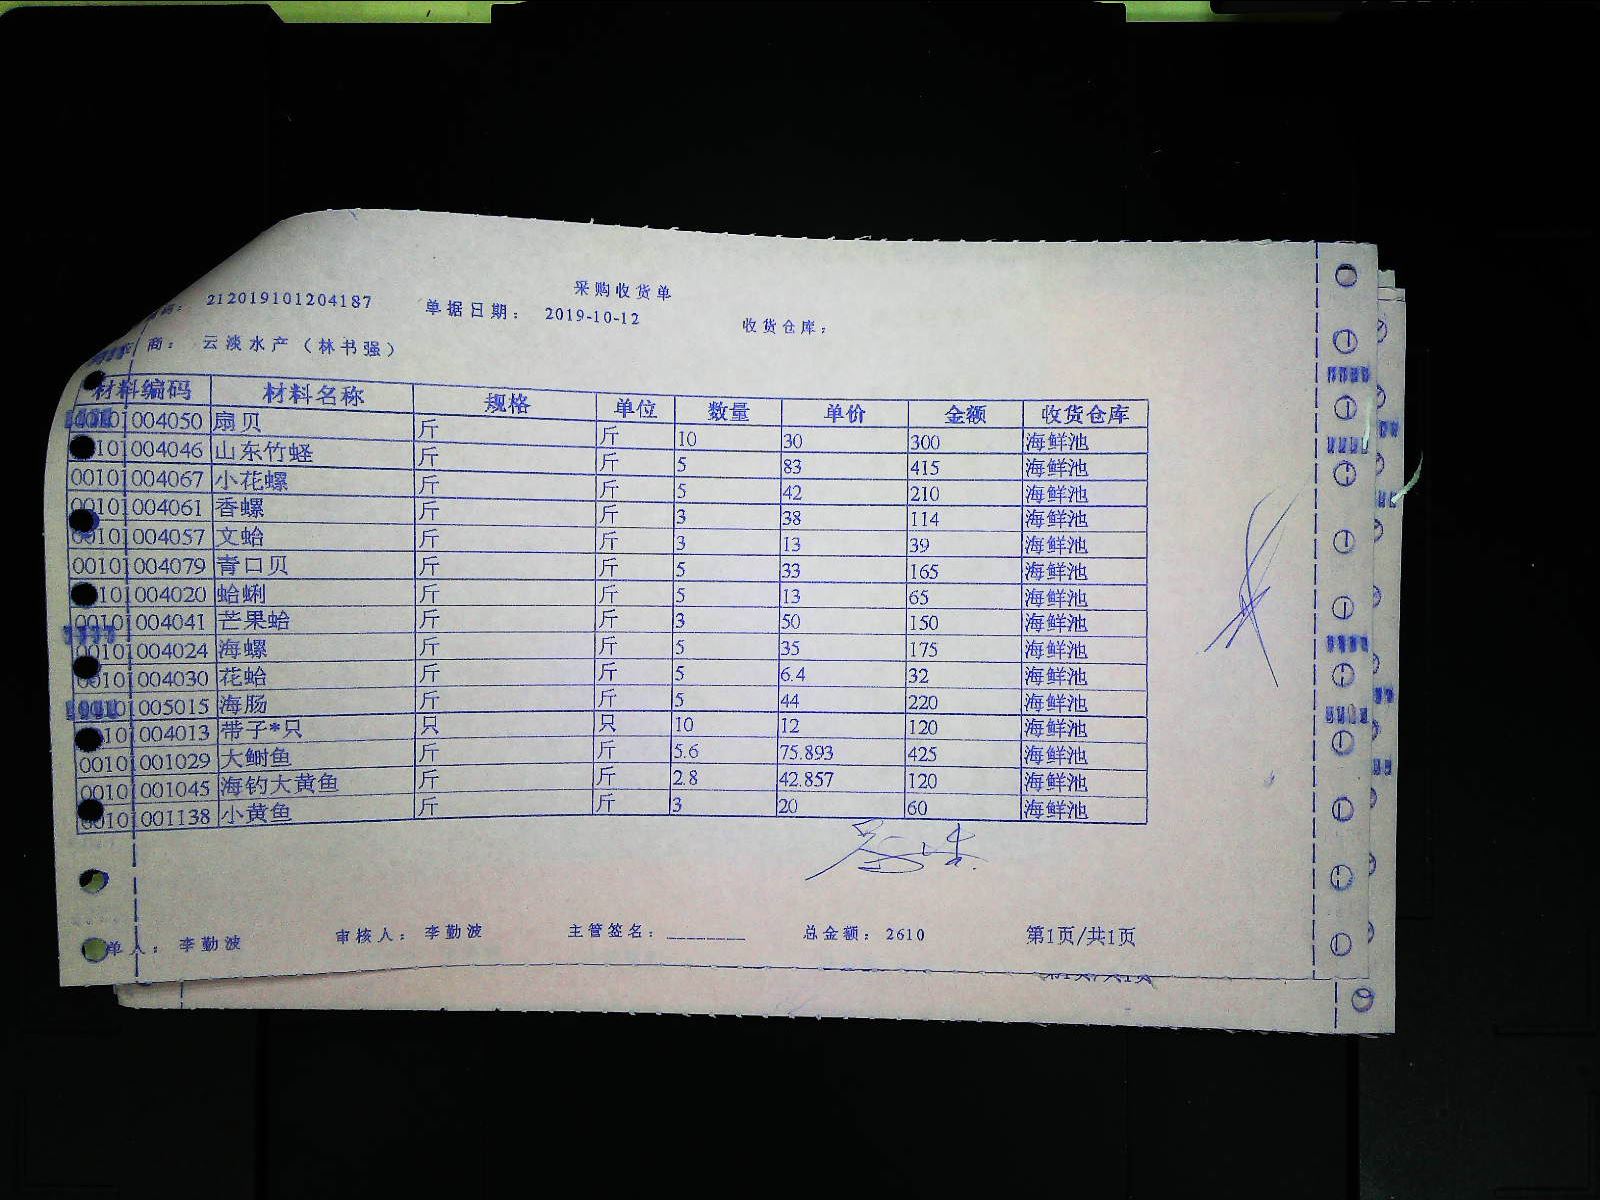 采购收货单
212019101204187 单据日期： 2019-10-12 收货仓库：
商： 云淡水产（林书强）
材料编码 材料名称 规格 单位 数量 单价 金额 收货仓库
00101004050 扇贝 斤 斤 10 30 300 海鲜池
00101004046 山东竹蛏 斤 斤 5 83 415 海鲜池
00101004067 小花螺 斤 斤 5 42 210 海鲜池
00101004061 香螺 斤 斤 3 38 114 海鲜池
00101004057 文蛤 斤 斤 3 13 39 海鲜池
00101004079 青口贝 斤 斤 5 33 165 海鲜池
00101004020 蛤蜊 斤 斤 5 13 65 海鲜池
00101004041 芒果蛤 斤 斤 3 50 150 海鲜池
00101004024 海螺 斤 斤 5 35 175 海鲜池
00101004030 花蛤 斤 斤 5 6.4 32 海鲜池
00101005015 海肠 斤 斤 5 44 220 海鲜池
00101004013 带子*只 只 只 10 12 120 海鲜池
00101001029 大鲥鱼 斤 斤 5.6 75.893 425 海鲜池
00101001045 海钓大黄鱼 斤 斤 2.8 42.857 120 海鲜池
00101001138 小黄鱼 斤 斤 3 20 60 海鲜池
单人： 李勤波 审核人： 李勤波 主管签名：________ 总金额： 2610 第1页/共1页